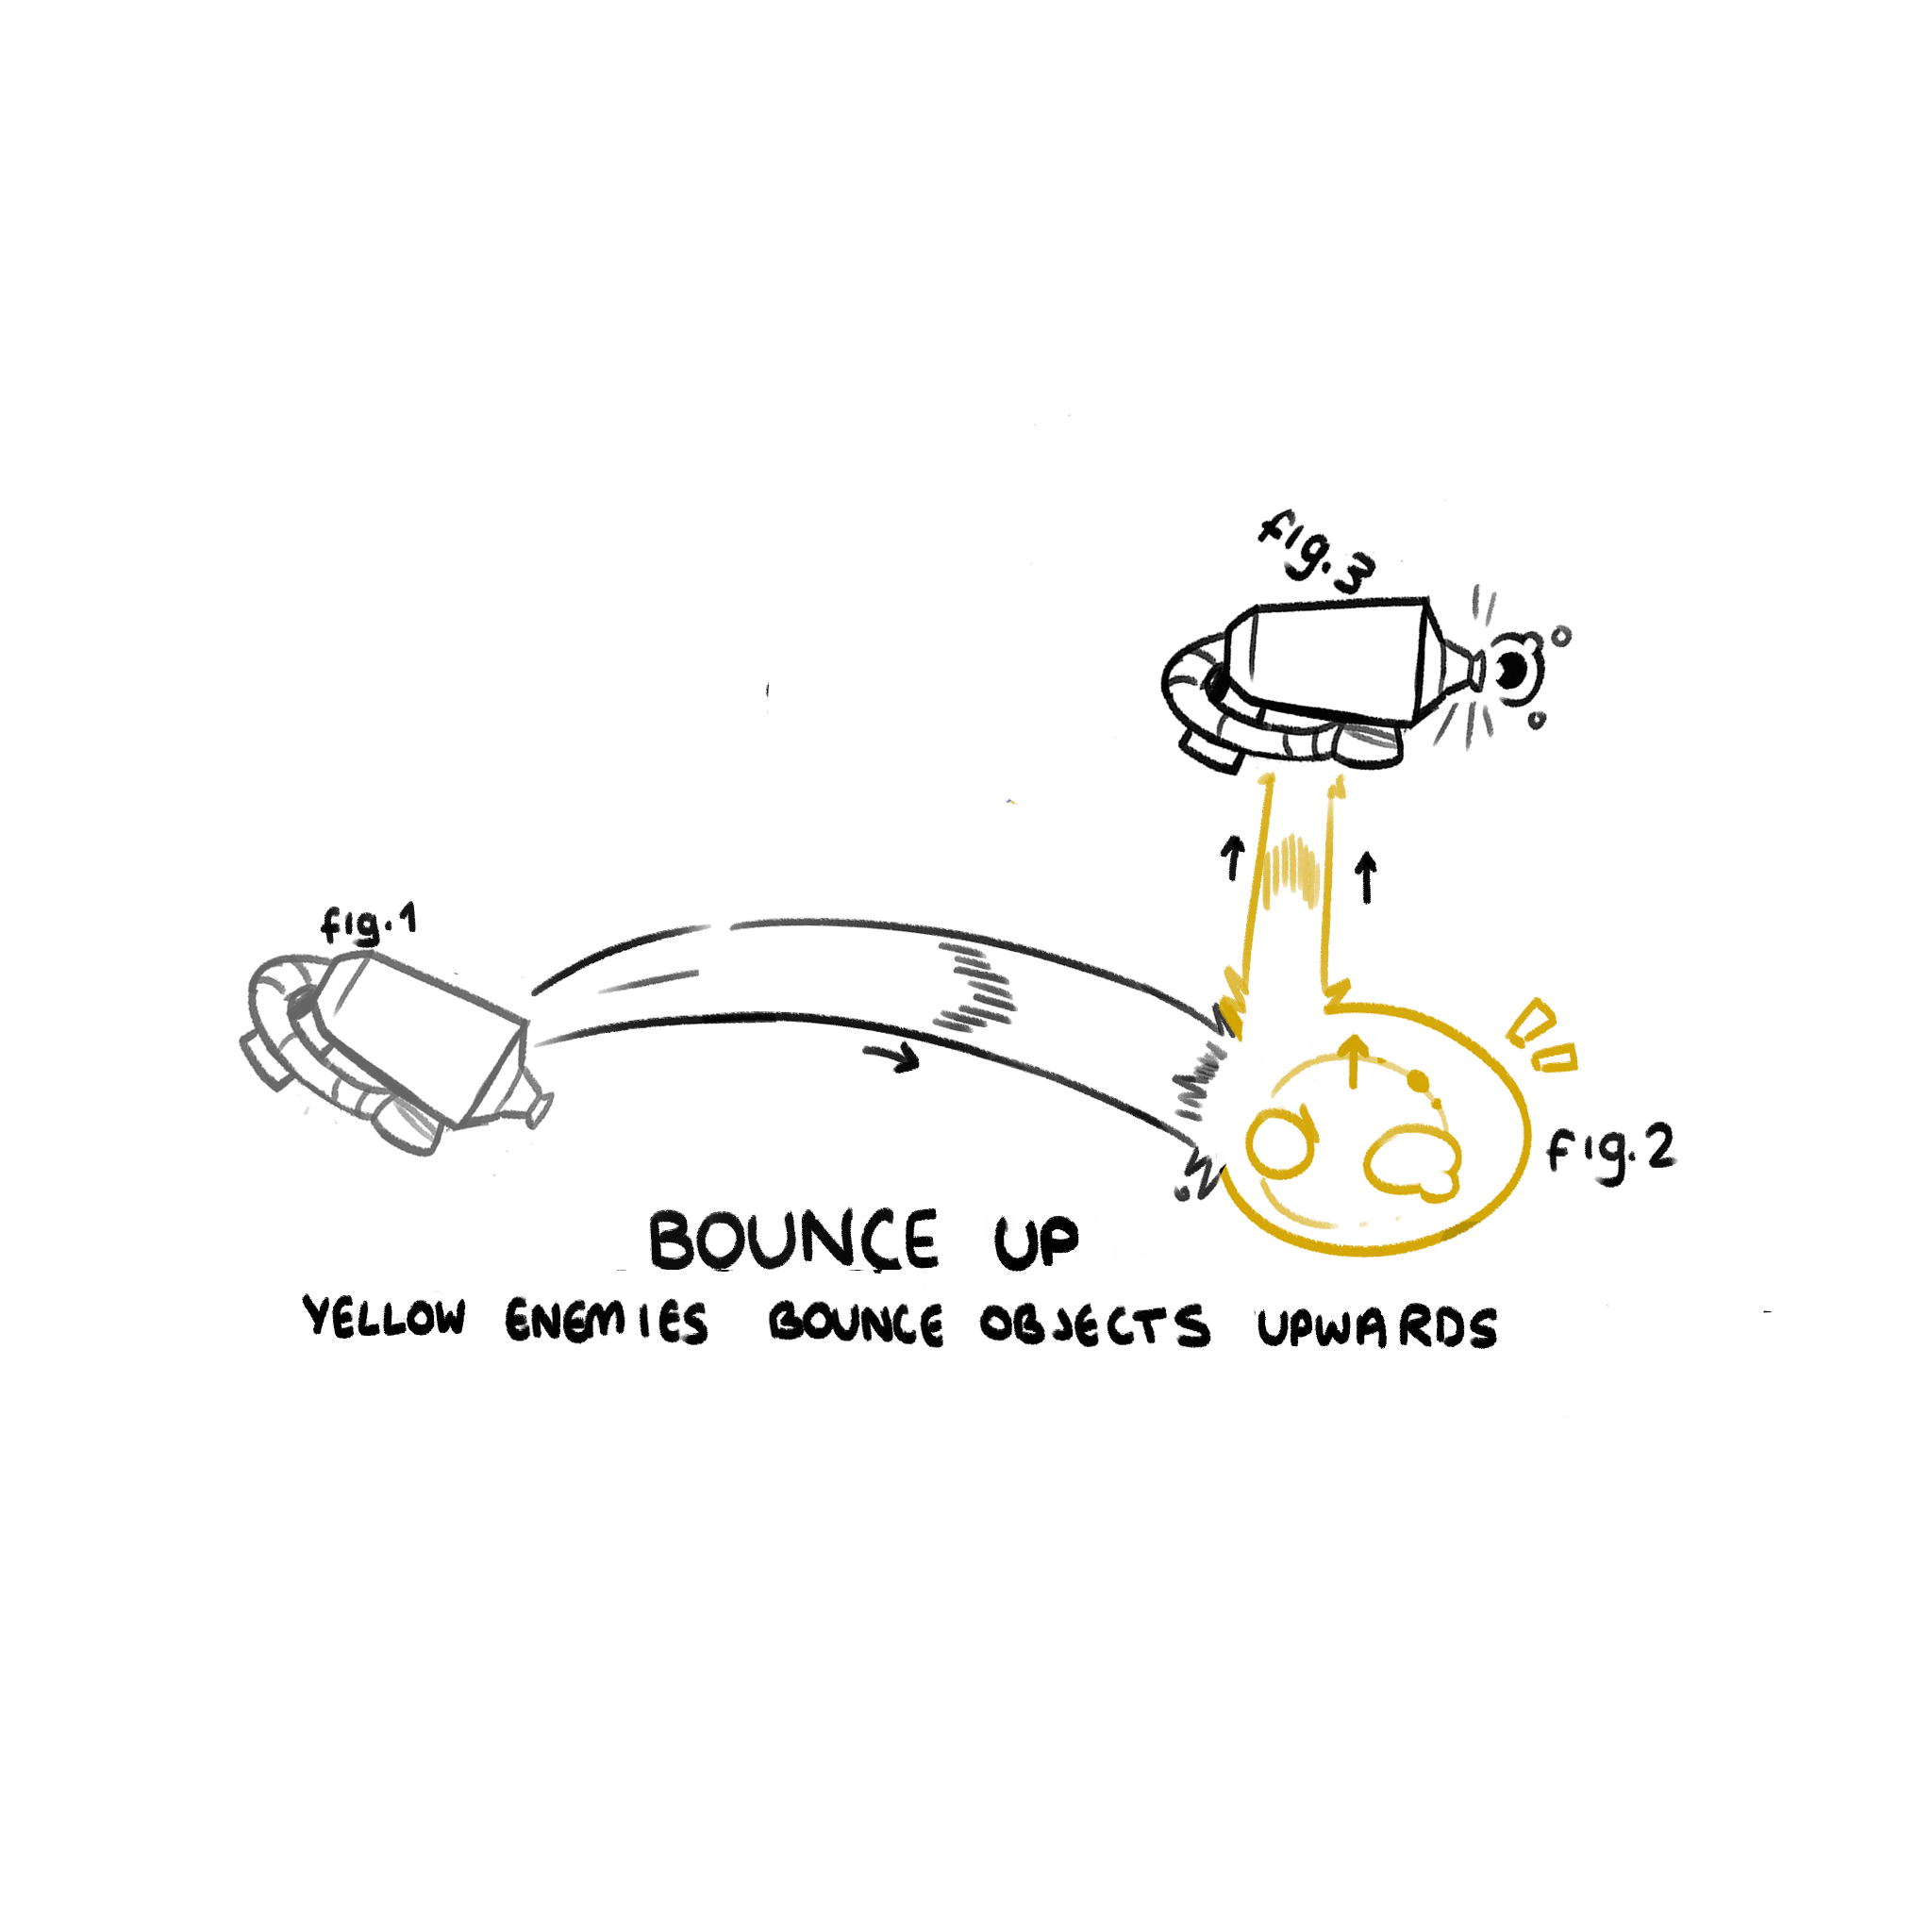 fig.3
fig.1
fig.2
BOUNCE UP
YELLOW ENEMIES BOUNCE OBJECTS UPWARDS